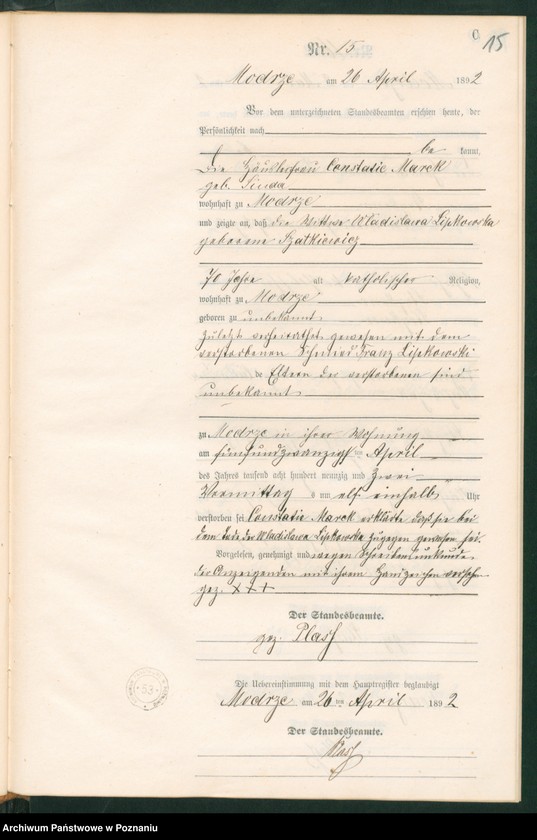 C.
15
Nr. 15
Modrze am 26 April 1892
Vor dem unterzeichneten Standesbeamten erschien heute, der
Persönlichkeit nach
be kannt,
die Häuslerfrau Constatie Marek
geb.
wohnhaft zu Modrze
und zeigte an, daß die Wittwe Wladislawa Lipkowska
geborene Szatkiewicz
70 Jahre alt katholischer Religion,
wohnhaft zu Modrze
geboren zu unbekannt
zuletzt verheirathet gewesen mit dem
verstorbenen Schmied Franz Lipkowski
de Eltern der verstorbenen sind
unbekannt
zu Modrze in ihrer Wohnung
am fünfundzwanzigsten April
des Jahres tausend acht hundert neunzig und zwei
Vormittags um elf einhalb Uhr
verstorben sei. Constatie Marek erklärte daß sie bei
dem Tode der Wladislawa Lipkowska zugegen gewesen sei.
Vorgelesen, genehmigt und wegen Schreibensunkunde
der Anzeigenden mit ihrem Handzeichen versehen
gez. + + +
Der Standesbeamte.
gez.
Die Uebereinstimmung mit dem Hauptregister beglaubigt
Modrze am 26 ten April 1892
Der Standesbeamte.
53
Archiwum Państwowe w Poznaniu